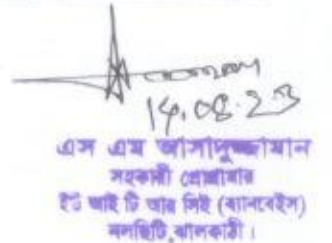 14.08.23
এস এম আসাদুজ্জামান
সহকারী প্রোগ্রামার
ইউ আই টি আর সিই (ব্যানবেইস)
নলছিটি, ঝালকাঠী।